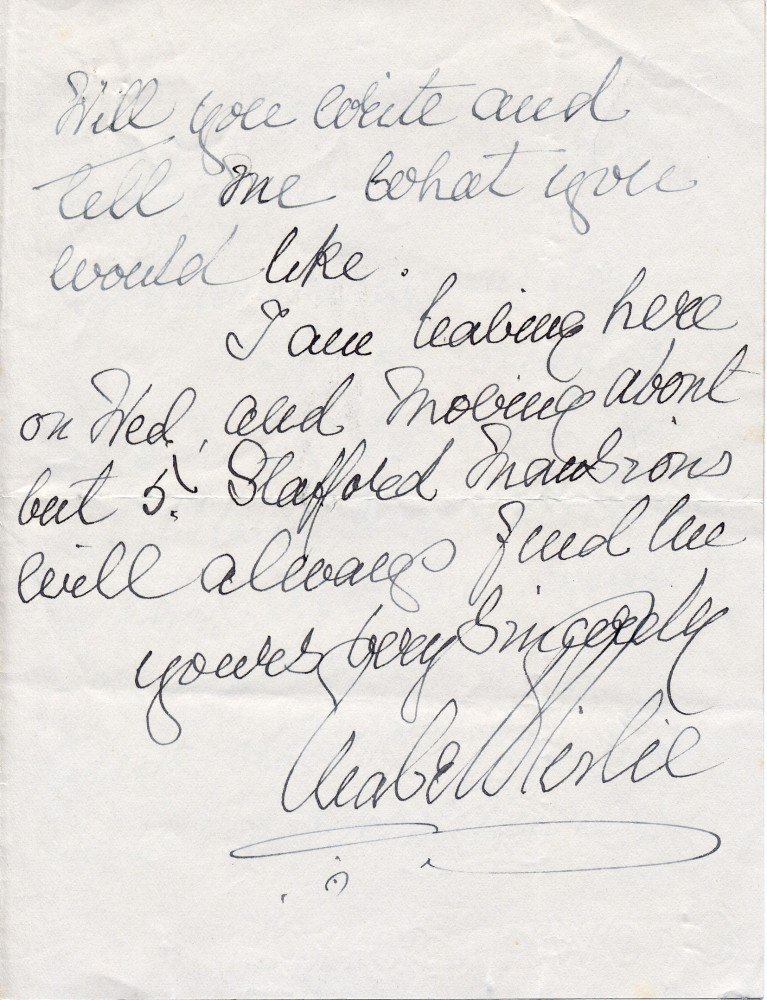 Will you write and
tell me what you
would like.
I am leaving here
on Wed, and moving about
but 5. Stafford Mansions
will always find me
yours very sincerely